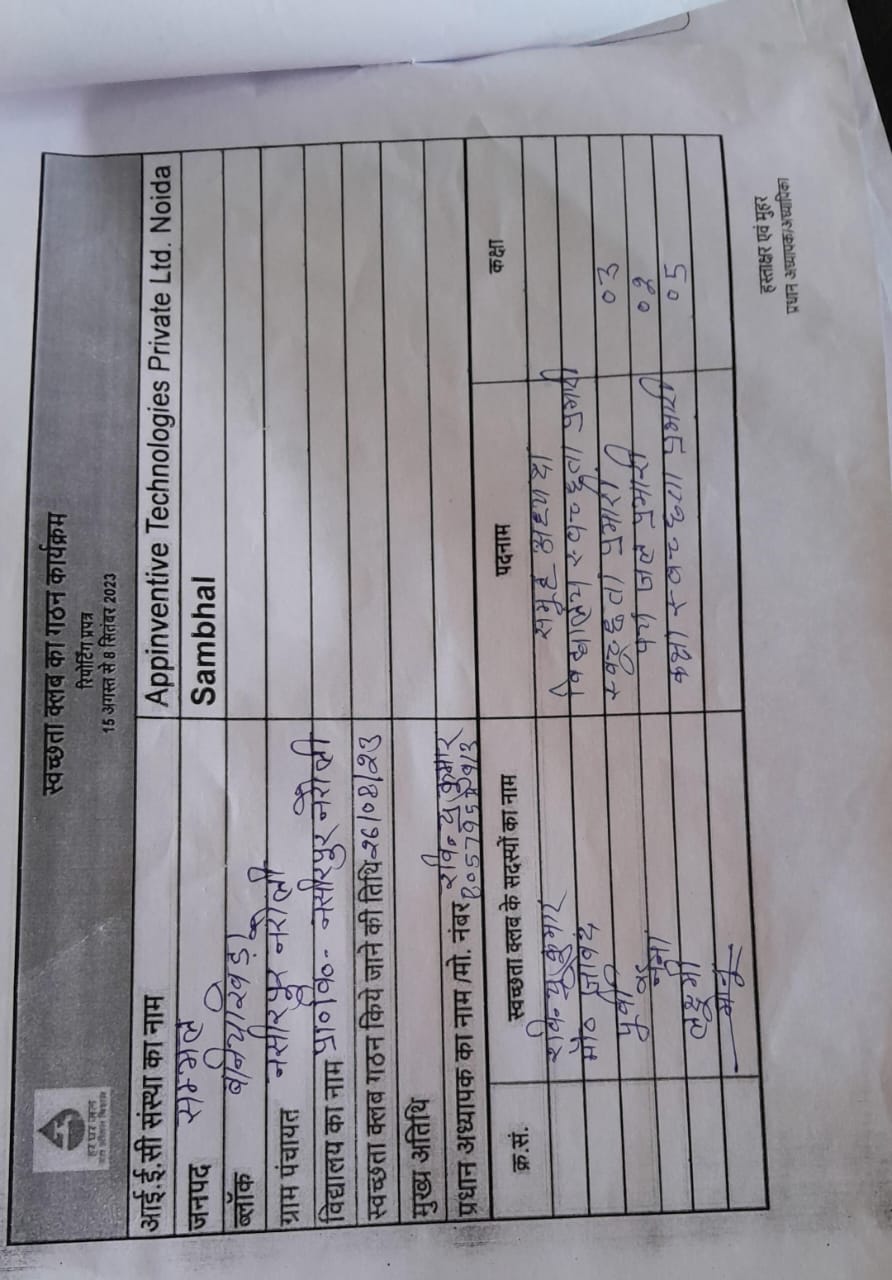 हर घर जल
जल जीवन मिशन
स्वच्छता क्लब का गठन कार्यक्रम
रिपोर्टिंग प्रपत्र
15 अगस्त से 8 सितंबर 2023
आई.ई.सी संस्था का नाम Appinventive Technologies Private Ltd. Noida
जनपद सम्भल Sambhal
ब्लॉक बनियाखेड़ा
ग्राम पंचायत नसीरपुर नरौली
विद्यालय का नाम प्रा०वि०- नसीरपुर नरौली
स्वच्छता क्लब गठन किये जाने की तिथि-26/08/23
मुख्य अतिथि
प्रधान अध्यापक का नाम /मो. नंबर रविन्द्र कुमार
क्र.सं. स्वच्छता क्लब के सदस्यों का नाम पदनाम कक्षा
रविन्द्र कुमार समूह अध्यक्ष
मौ० विद्यालय स्वच्छता प्रभारी
स्वच्छता प्रभारी 03
जल प्रभारी 02
लक्ष्मी कक्षा स्वच्छता प्रभारी 05
हस्ताक्षर एवं मुहर
प्रधान अध्यापक/अध्यापिका